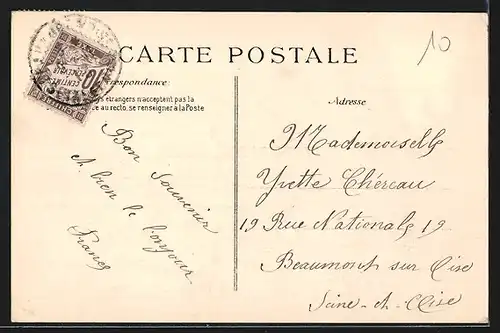 CARTE POSTALE
10
rrespondance:
ys étrangers n'acceptent pas la
ce au recto, se renseigner à la Poste
Adresse
10
CENTIMES
À PERCEVOIR
Bon souvenir
et bien le bonjour
Mademoiselle
Yvette Chéreau
19 Rue Nationale 19
Beaumont sur Oise
Seine-et-Oise